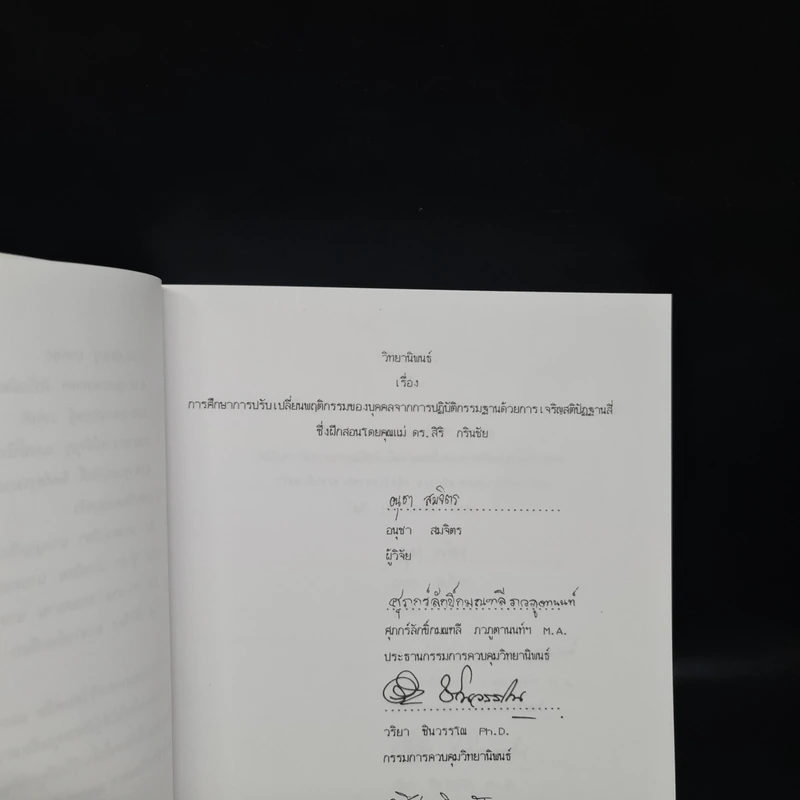 วิทยานิพนธ์
เรื่อง
การศึกษาการปรับเปลี่ยนพฤติกรรมของบุคคลจากการปฏิบัติกรรมฐานด้วยการเจริญสติปัฏฐานสี่
ซึ่งฝึกสอนโดยคุณแม่ ดร.สิริ กรินชัย
อนุชา สมจิตร
อนุชา สมจิตร
ผู้วิจัย
ศุภกร์ลักขิ์กมณฑลี ภวภูตานนท์ฯ M.A.
ประธานกรรมการควบคุมวิทยานิพนธ์
วริยา ชินวรรโณ Ph.D.
กรรมการควบคุมวิทยานิพนธ์